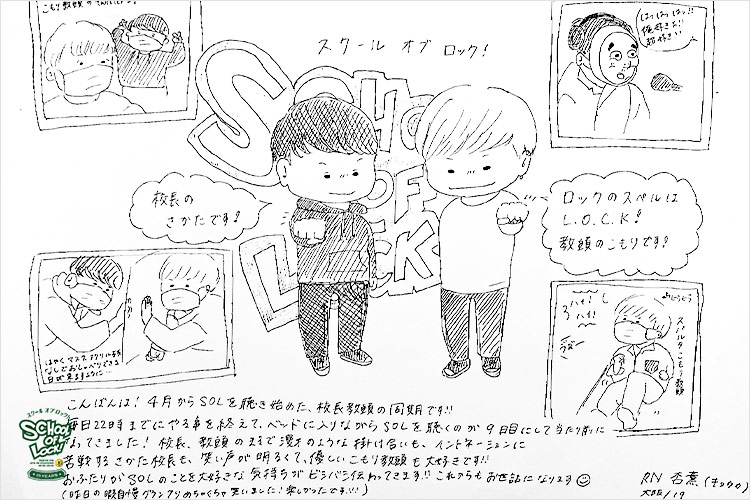 こもり教頭の
スクール オブ ロック!
はっはっはッ!!
SCHOOL
OF
LOCK
校長の
さかたです!
ロックのスペルは
L.O.C.K!
教頭のこもりです!
はやくマスク アクリル板
なしでおしゃべりできる
日が来ますように…
ハイ!
ハイ!
スパルタこもり教頭
こんばんは! 4月からSOLを聴き始めた、校長教頭の同期です!!
毎日22時までにやる事を終えて、ベッドに入りながらSOLを聴くのが9日目にして当たり前に
なってきました! 校長、教頭のまるで漫才のような掛け合いも、イントネーションに
苦戦するさかた校長も、笑い声が明るくて、優しいこもり教頭も大好きです!!
おふたりがSOLのことを大好きな気持ちがビシバシ伝わってきます!! これからもお世話になります
(昨日の暇自慢グランプリめちゃくちゃ笑いました! 楽しかったです!!!)
RN 杏薫
大阪/19
スクール オブ ロック!
SCHOOL
OF
LOCK!